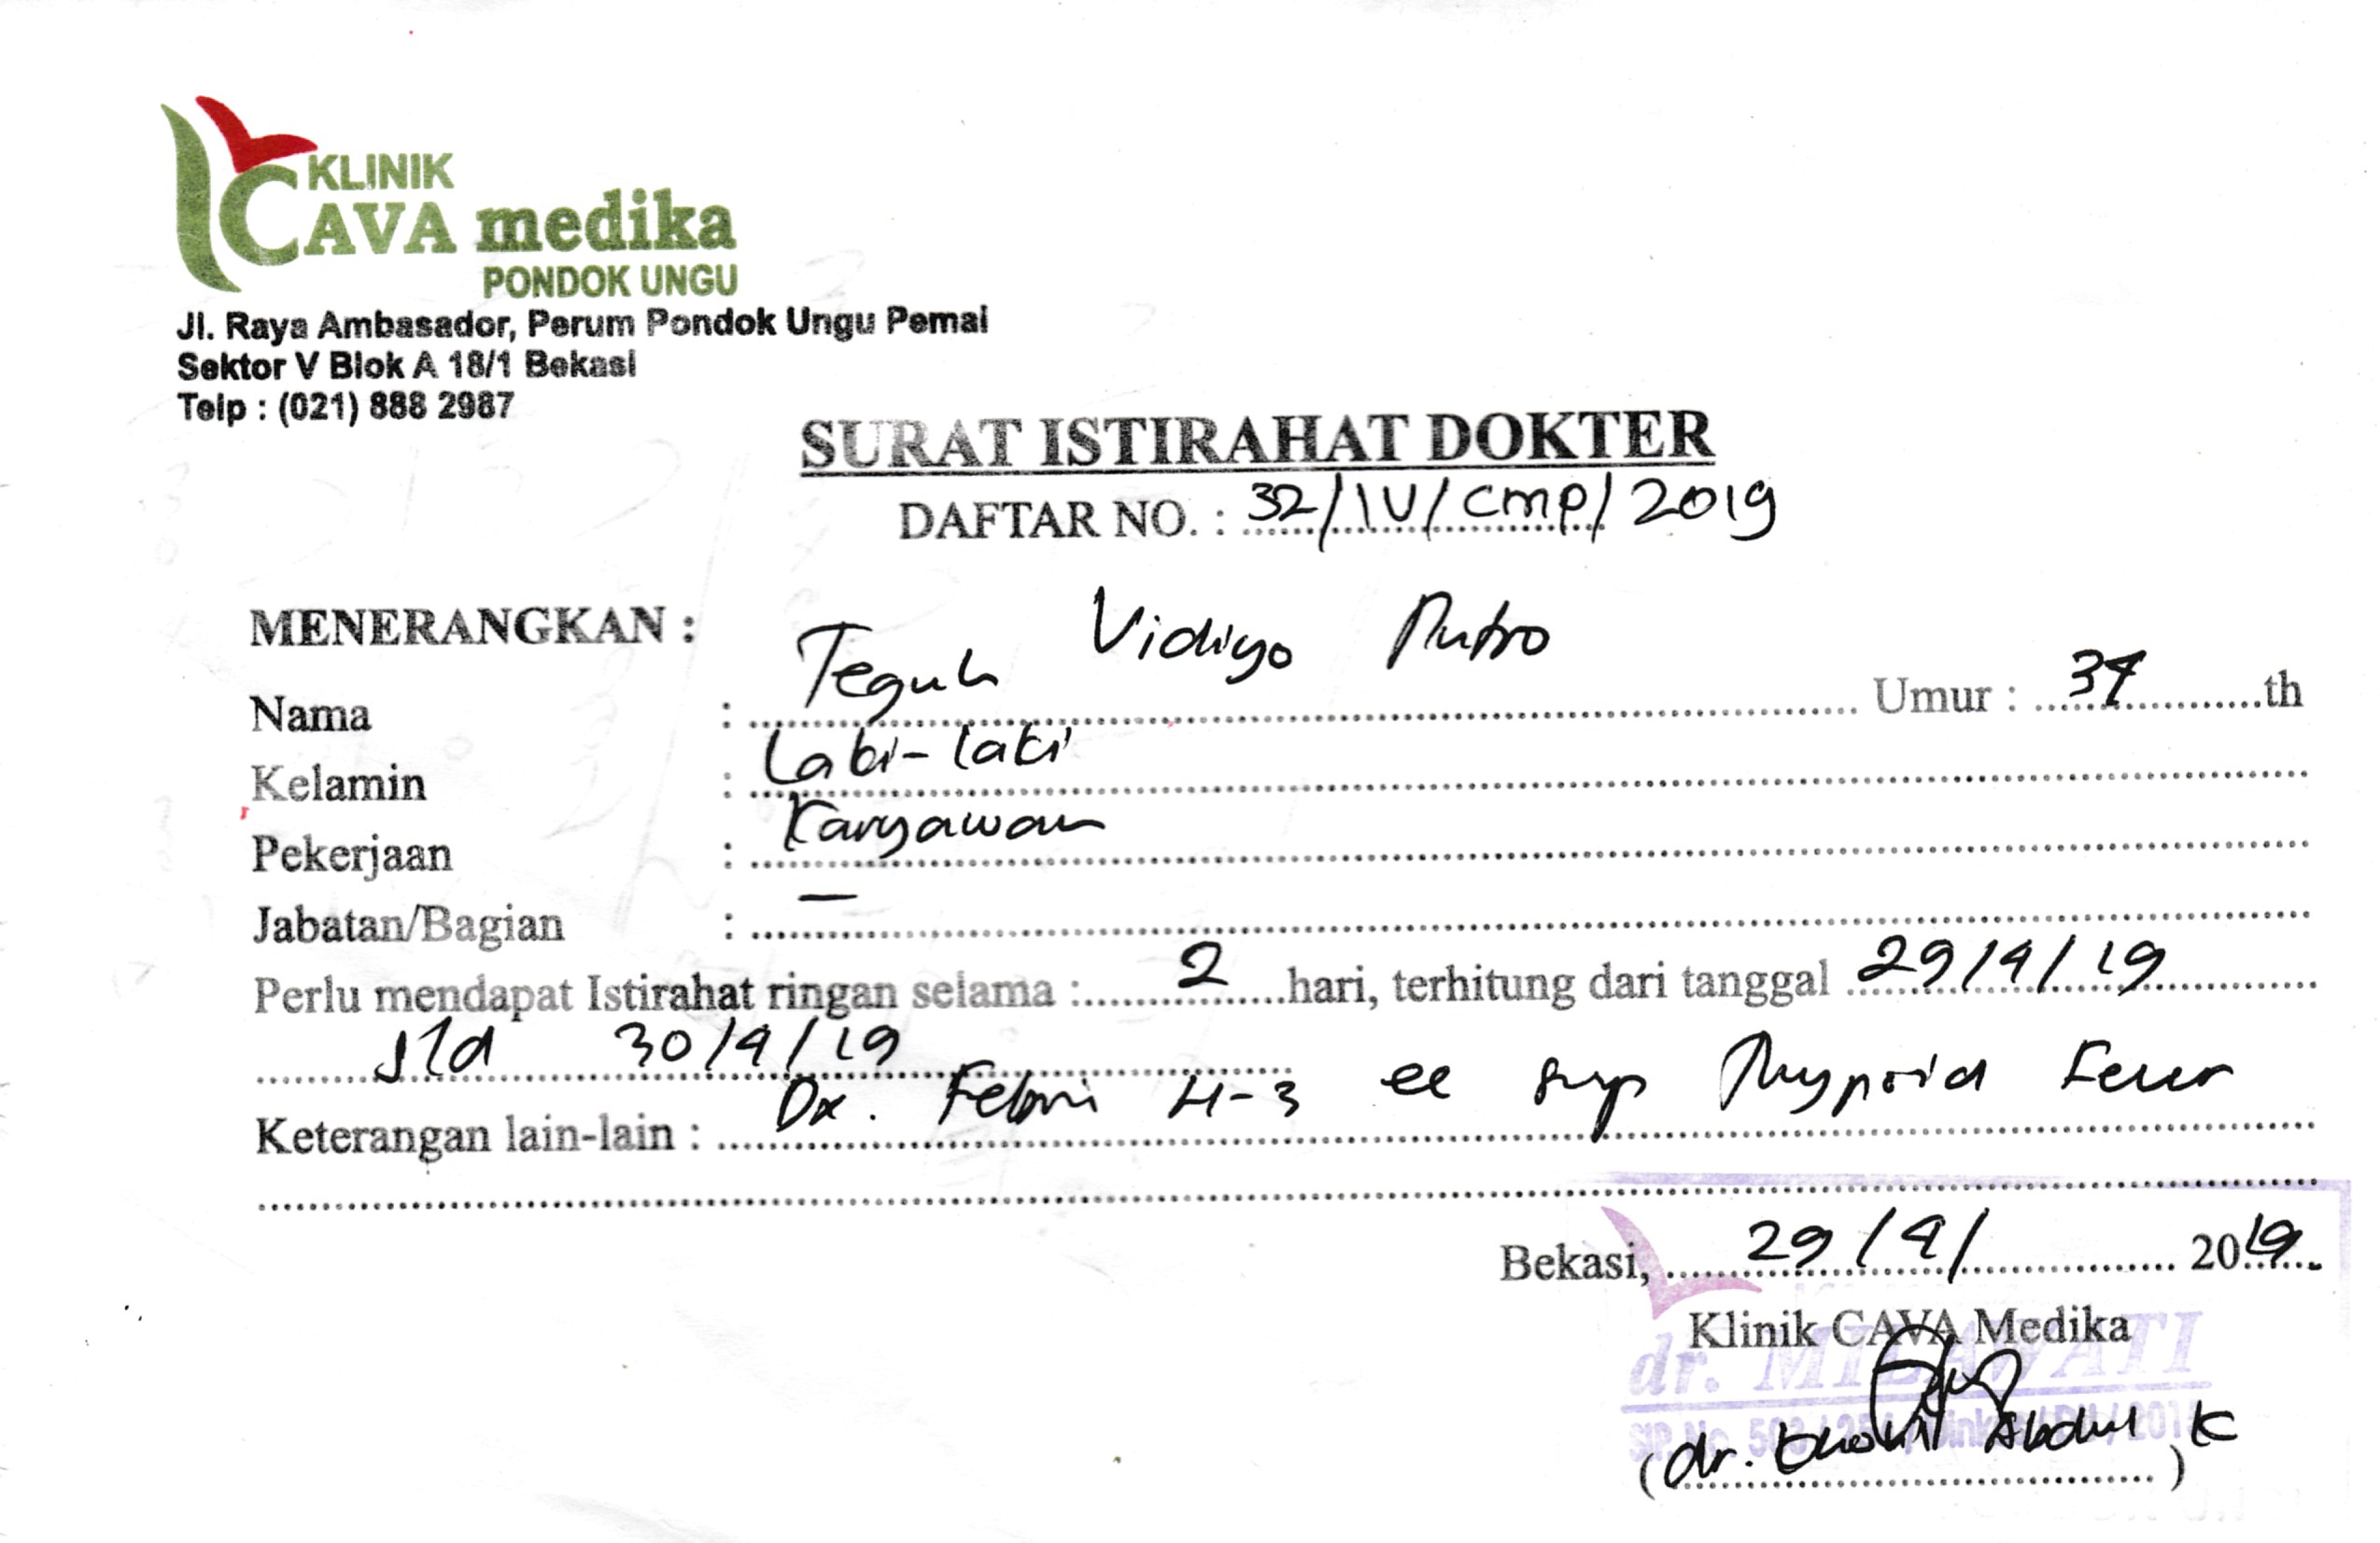 KLINIK
CAVA medika
PONDOK UNGU
Jl. Raya Ambasador, Perum Pondok Ungu Pemai
Sektor V Blok A 18/1 Bekasi
Telp : (021) 888 2987
SURAT ISTIRAHAT DOKTER
DAFTAR NO. : 32/IV/CMP/2019
MENERANGKAN :
Nama : Teguh Vidiyo Putro Umur : 34 th
Kelamin : Laki-laki
Pekerjaan : Karyawan
Jabatan/Bagian : —
Perlu mendapat Istirahat ringan selama : 2 hari, terhitung dari tanggal 29/4/19
s/d 30/4/19
Keterangan lain-lain : Dx. Febris H-3 ec susp Thypoid Fever
Bekasi, 29/4/ 2019
Klinik CAVA Medika
dr. MILAWATI
SIP. No. 503
(dr. Abdul K)